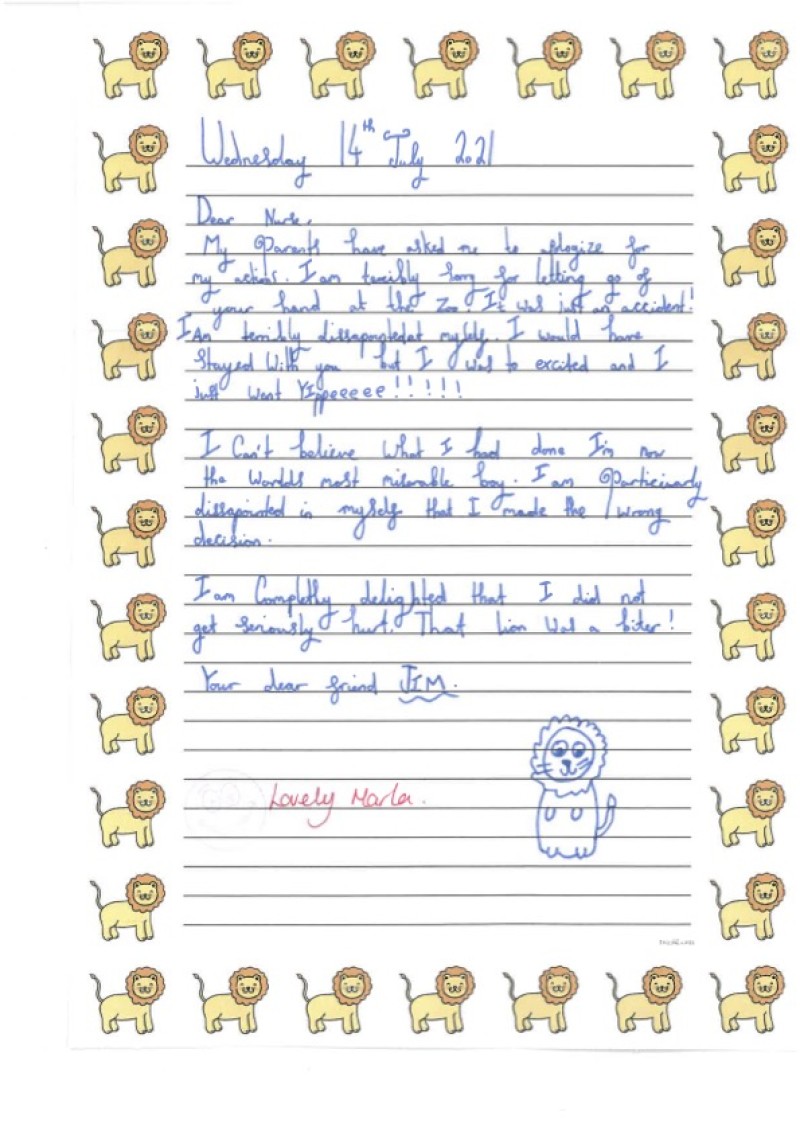 Wednesday 14th July 2021
Dear Nurse,
My Parents have asked me to apologize for
my actions. I am terribly sorry for letting go of
your hand at the zoo. It was just an accident!
I Am terribly dissapointedat myself. I would have
Stayed With you but I was to excited and I
just Went YIppeeeee!!!!!
I Can't believe What I had done I'm now
the Worlds most miserable boy. I am Particuarly
dissapointed in myself that I made the wrong
decision.
I am Completly delighted that I did not
get seriously hurt. That lion was a biter!
Your dear friend JIM.
Lovely Marla.